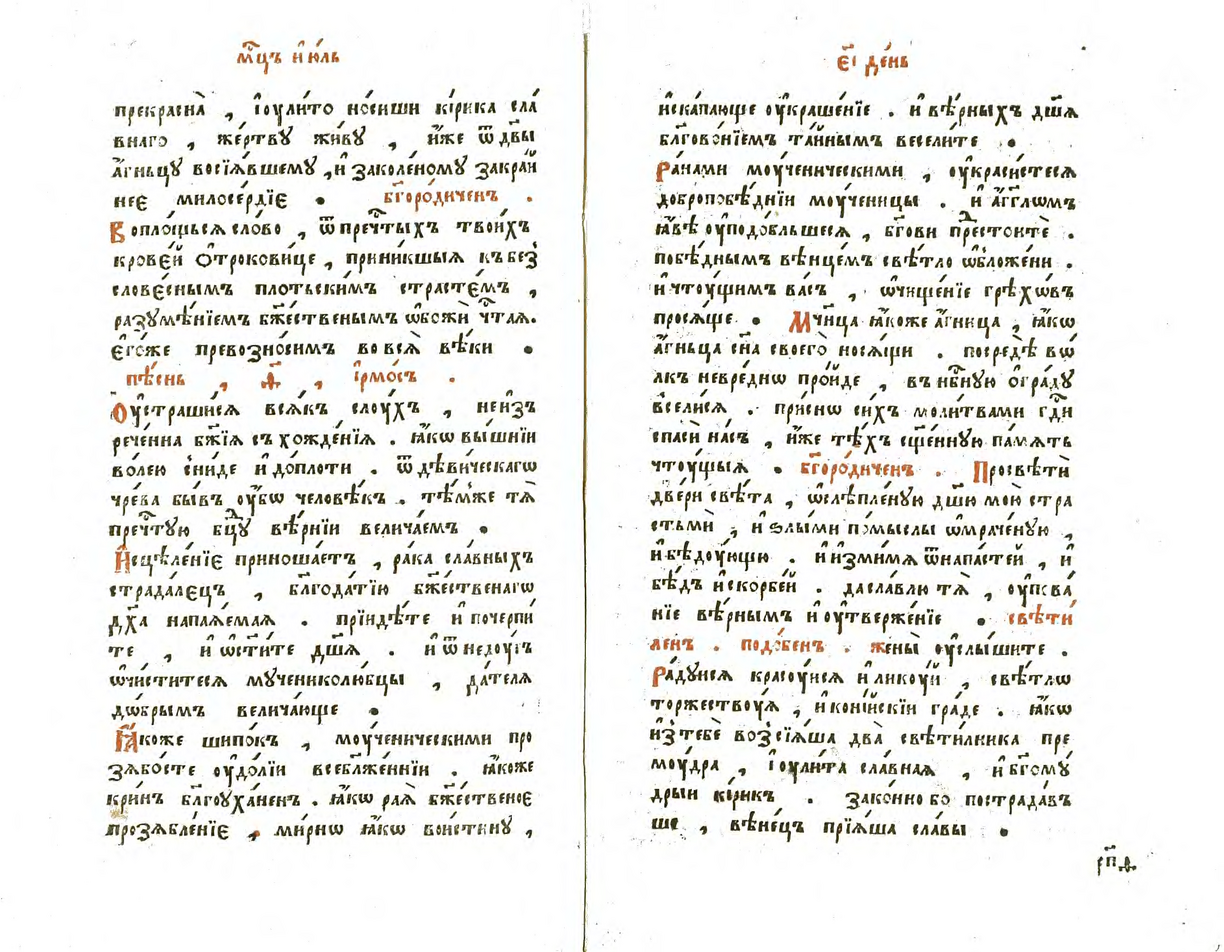 мⷭ҇цъ і҆ю́ль
прекрасна̀ , і҆оули́то но́сиши кі́рика сла́
внаго , же́ртвꙋ жи́вꙋ , и҆́же ѿ дв҃ы
а҆́гньцꙋ возсїѧ́вшемꙋ , и҆ заколе́номꙋ за кра́й
нее милосе́рдїе . бг҃оро́диченъ .
Воплощьсѧ сло́во , ѿ пречⷭ҇тыхъ твои́хъ
крове́й ѻ҆трокови́це , прини́кшыѧ къ без̾
слове́снымъ пло́тьскимъ страсте́мъ ,
разꙋмѣ́нїемъ бж҃е́ственымъ ѡ҆божѝ чⷭ҇таѧ.
є҆го́же превозно́симъ во всѧ̀ вѣ́ки .
пѣ́снь , ѳ҃ , і҆рмо́съ .
Оу҆страши́сѧ всѧ́къ слоу́хъ , неиз̾
рече́нна бж҃їѧ съхожде́нїѧ . ꙗ҆́кѡ вы́шнїи
во́лею сни́де и҆ до пло́ти . ѿ дѣ́вическагѡ
чре́ва бы́въ оу҆́бѡ человѣ́къ . тѣ́мже тѧ̀
пречⷭ҇тꙋю бцⷣꙋ вѣ́рнїи велича́емъ .
И҆сцѣле́нїе приноша́етъ , ра́ка сла́вныхъ
страда́лецъ , бл҃года́тїю бж҃е́ственагѡ
дх҃а напаѧ́емаѧ . прїиндѣ́те и҆ почерпи́
те , и҆ ѡ҆сти́те дш҃ѧ . и҆ ѿ недоу́гъ
ѡ҆чи́ститесѧ мꙋ́чениколю́бцы , да́телѧ
дѡ́брымъ велича́юще .
Ꙗ҆́коже шипо́къ , моу́ченическими про
зѧбо́сте оу҆до́лїи всебл҃же́ннїи . ꙗ҆́коже
кри́нъ бл҃гоуха́ненъ . ꙗ҆́кѡ ра́ѧ бж҃е́ственое
прозѧбле́нїе , ми́рнѡ ꙗ҆́кѡ вои́стинꙋ ,
є҃і де́нь
искапа́юще оу҆краше́нїе . и҆ вѣ́рныхъ дш҃ѧ
бл҃гово́нїемъ та́йнымъ весели́те .
Ра́нами моу́ченическими , оу҆краси́стесѧ
добропобѣ́днїи моу́ченицы . и҆ а҆́гг҃лѡмъ
ꙗ҆́вѣ оу҆подо́бльшесѧ , бг҃ови престоите̑ .
побѣ́днымъ вѣнце́мъ свѣ́тло ѡ҆бложе́ни .
и҆ чтоу́щимъ ва́съ , ѡ҆чище́нїе грѣхѡ́въ
просѧ́ще . Мчⷭ҇ница ꙗ҆́коже а҆́гница , ꙗ҆́кѡ
а҆́гньца сн҃а своего̀ носѧ́щи . посредѣ̀ вѡ
лкъ невре́днѡ про́йде , въ нбⷭ҇нꙋю ѻ҆гра́дꙋ
всели́сѧ . при́снѡ си́хъ моли́твами гдⷭ҇и
спасѝ на́съ , и҆́же тѣ́хъ сщ҃е́ннꙋю па́мѧть
чтоу́щыѧ . бг҃оро́диченъ . Просвѣтѝ
две́ри свѣ́та , ѡ҆слѣпле́нꙋю дш҃ю мою̀ стра
стьмѝ , и҆ ѕлы́ми по́мыслы ѡ҆мраче́нꙋю ,
и҆ бѣдоу́ющю . и҆ и҆зми́мѧ ѿ напа́стей , и҆
бѣ́дъ и҆ скорбе́й . да сла́влю тѧ̀ , оу҆пова́
нїе вѣ́рнымъ и҆ оу҆твержѐнїе . свѣти́
ленъ . подо́бенъ . жены̀ оу҆слы́шите .
Ра́дуисѧ красоу́исѧ и҆ ликоу́й , свѣ́тлѡ
торжествоу́ѧ , и҆ко́нїйскїи гра́де . ꙗ҆́кѡ
и҆з̾ тебѐ возсїѧ́ша два̀ свѣти́лника пре
моу́дра , і҆оули́та сла́внаѧ , и҆ бг҃омꙋ́
дрыи кі́рикъ . зако́нно бо пострада́въ
ше , вѣне́цъ прїѧ́ша сла́вы .
рп҃ѳ